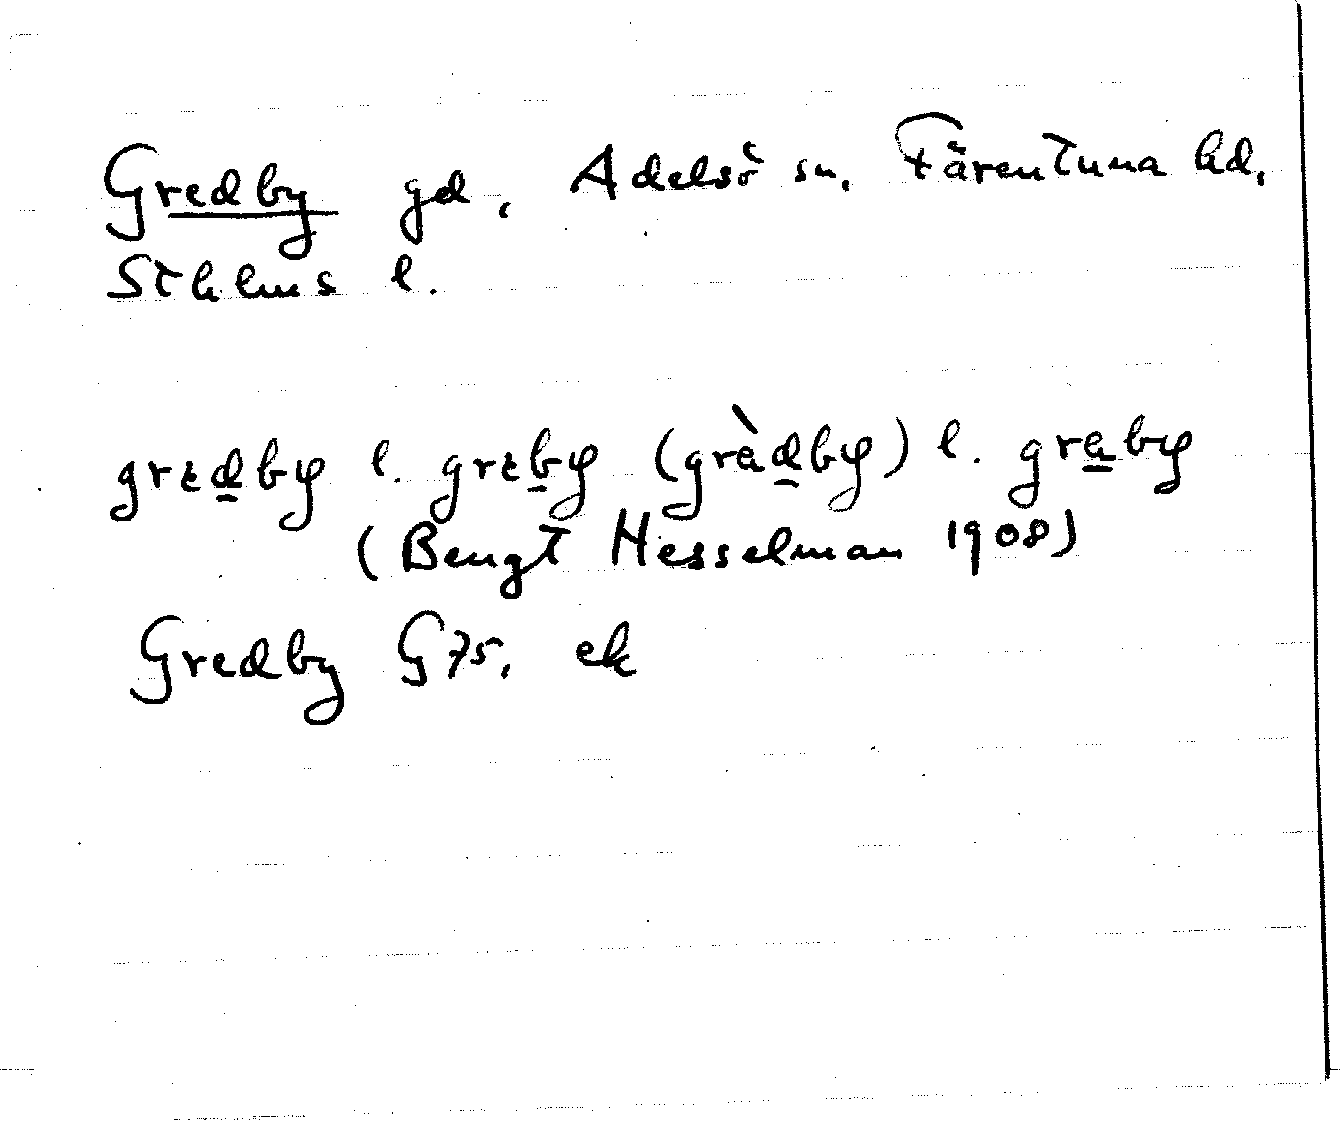 Gredby gd, Adelsö sn, Färentuna hd,
Sthlms l.
gredby l. greby (grèdby) l. graby
(Bengt Hesselman 1908)
Gredby G75, ek